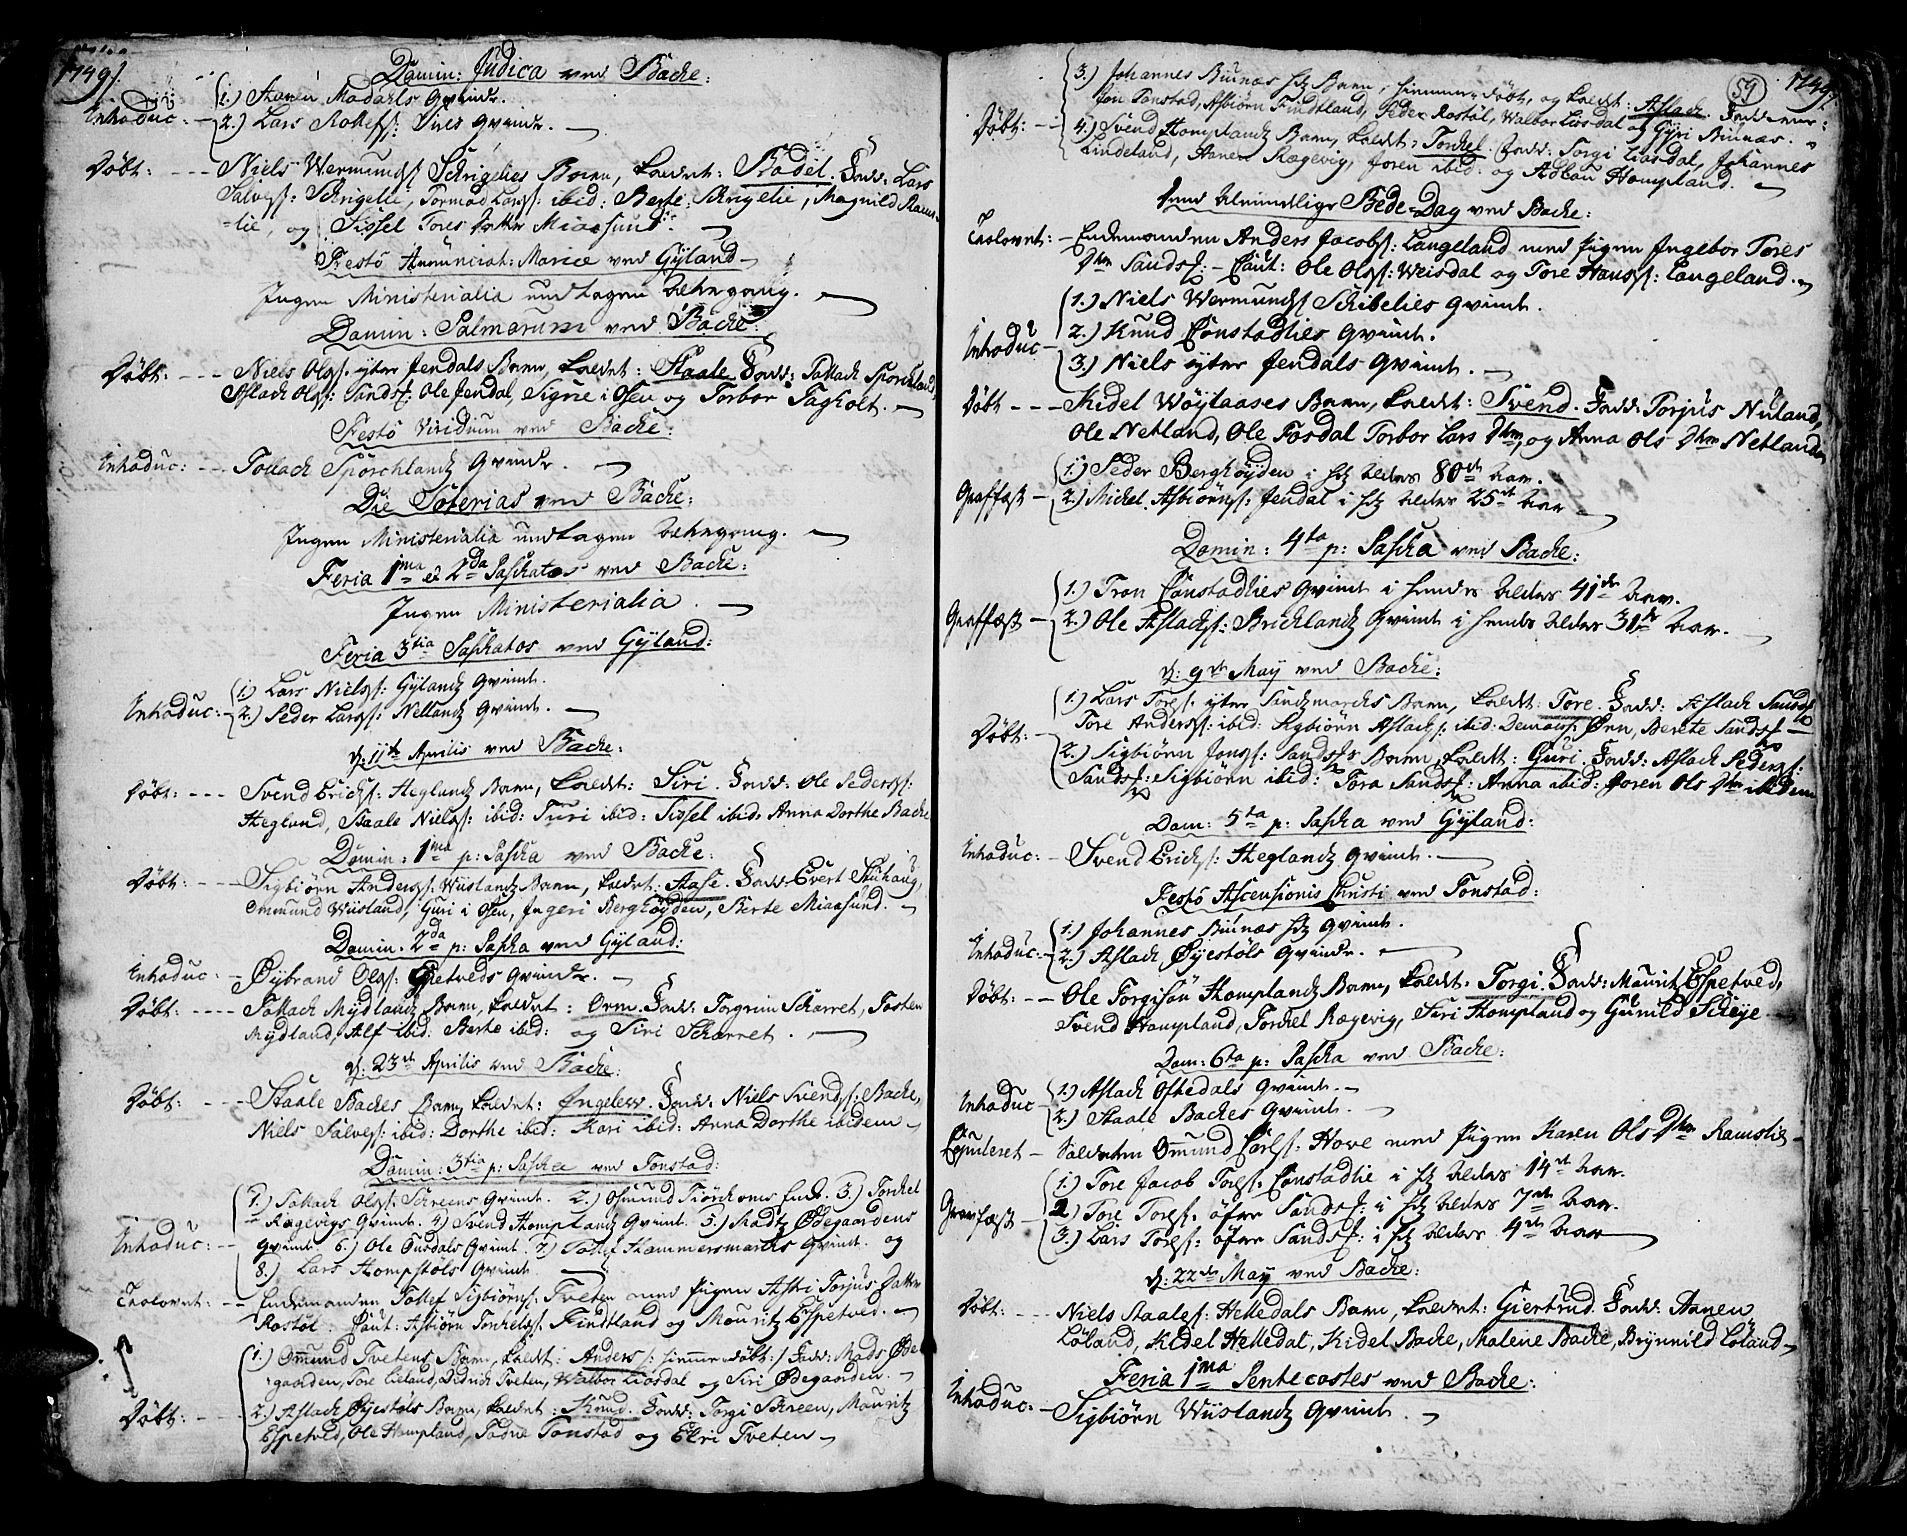 1749.
Domin: Judica ved Backe:
Introduc: 1.) Aanen Modahls Qvinde.
2.) Lars Rollefs: Sires Qvinde.
Døbt: Niels Wermunds: Schrigelies Barn, kaldet: Bodel. Fadd: Lars
Salves: Schrigelie, Tormod Lars: ibid: Berte Schrigelie, Magnild Rams-
-lie, og Sissel Tores Datter Miaasund.
Festo Annunciat: Mariæ ved Gÿland
Ingen Ministerialia undtagen
Domin: Palmarum ved Backe:
Døbt: Niels Ols: ytre Jendals Barn, kaldet: Staale. Fadd: Tollach Sporchland,
Aslach Ols: Sands: Ole Jendal, Signe i Osen og Torbor Fagholt.
Festo Viridium ved Backe:
Introduc: Tollach Sporchlands Qvinde.
Die Soterias ved Backe:
Ingen Ministerialia undtagen
Feria 1ma et 2da Paschatos ved Backe:
Ingen Ministerialia.
Feria 3tia Paschatos ved Gÿland:
Introduc: 1.) Lars Niels: Gÿlands Qvinde.
2.) Peder Lars: Netlands Qvinde.
d: 11te Aprilis ved Backe:
Døbt: Svend Erichs: Heglands Barn, kaldet: Siri. Fadd: Ole Peders:
Hegland, Staale Niels: ibid: Turi ibid: Sissel ibid: Anna Dorthe Backe
Domin: 1ma p: Pascha ved Backe:
Døbt: Sigbiörn Anders: Wiislands Barn, kaldet: Aase. Fadd: Evert Stuhaug,
Ommund Wiisland, Guri i Osen, Ingeri Berghöyden, Berte Miaasund.
Domin: 2da p: Pascha ved Gÿland:
Introduc: Øybrand Ols: Espetveds Qvinde.
Døbt: Tollach Mydlands Barn, kaldet: Orm. Fadd: Torgrim Scharret, Tosten
Mydland, Alf ibid: Berte ibid: og Siri Scharret.
d: 23de Aprilis ved Backe:
Døbt: Staale Backes Barn, kaldet: Ingeleiv. Fadd: Niels Svends: Backe,
Niels Salves: ibid: Dorthe ibid: Kari ibid: Anna Dorthe ibidem
Domin: 3tia p: Pascha ved Tonstad:
Introduc: 1.) Tollach Ols: Schreens Qvinde. 2.) Osmund Tiörchoms Enke. 3.) Torchel
Rægevigs Qvinde. 4.) Svend Homplands Qvinde. 5.) Madtz Ødegaardens
Qvinde. 6.) Ole Ousdals Qvinde. 7.) Tollef Hammersmarchs Qvinde. og
8.) Lars Hompstöls Qvinde
Trolovet: Enkemanden Tollef Sigbiörns: Tveten med Pigen Astri Torjus Datter
Rostöl. Caut: Asbiörn Torchels: Findtland og Mouritz Espetved.
Døbt: 1.) Ommund Tvetens Barn, kaldet: Anders /: hjemme döbt :/ Fadd: Mads Øde-
gaarden, Tore Lieland, Didrich Tveten, Walbor Liosdal og Siri Ødegaarden.
2.) Aslach Øyestöls Barn, kaldet: Knud. Fadd: Torgi Schreen, Mouritz
Espetved, Ole Hompland, Tadne Tonstad og Elri Tveten
59 1749.
Døbt: 3.) Johannes Biunæs Barn, hjemme döbt, og kaldet: Aslach. Fadd:
Jon Tonstad, Asbiörn Findtland, Peder Rostöl, Walbor Liosdal og Gyri Biunæs.
4.) Svend Homplands Barn, kaldet: Torchel. Fadd: Torgi Liosdal, Johannes
Lindeland, Aanen Rægevig, Joren ibid: og Adlou Hompland.
Den Almindelige Bede-Dag ved Backe:
Trolovet: Enkemanden Anders Jacobs: Langeland med Pigen Ingebor Tores
Dtr Sands: Caut: Ole Ols: Weisdal og Tore Hans: Langeland.
Introduc 1.) Niels Wermunds: Schibelies Qvinde.
2.) Knud Constadlies Qvinde.
3.) Niels ytre Jendals Qvinde.
Døbt Kidel Wöylaases Barn, kaldet: Svend. Fadd: Torjus Nuland,
Ole Netland, Ole Fosdal Torbor Lars Dtr, og Anna Ols Dtr Netland
Graffæst 1.) Peder Berghöyden i sit Alders 80de Aar.
2.) Michel Asbiörns: Jendal i sit Alders 25de Aar
Domin: 4ta p: Pascha ved Backe:
Graffæst 1.) Tron Constadlies Qvinde i hendes Alders 41de Aar.
2.) Ole Aslachs: Brichlands Qvinde i hendes Alders 31de Aar.
d: 9de May ved Backe:
Døbt: 1.) Lars Tores: ytre Finsmarchs Barn, kaldet: Tore. Fadd: Aslach Sands:
Tore Anders: ibid: Sigbiörn Aslachs: ibid: Ønn, Berete Sands:
2.) Sigbiörn Jons: Sands: Barn, kaldet: Guri. Fadd: Aslach Peders:
Sands: Sigbiörn ibid: Tora Sands: Anna ibid: Joren Ols Dtr ibidem
Dom: 5ta p: Pascha ved Gÿland:
Introduc: Svend Erichs: Heglands Qvinde.
Festo Ascensionis Christi ved Tonstad:
Introduc: 1.) Johannes Biunæs Qvinde.
2.) Aslach Øyestöls Qvinde.
Døbt: Ole Torgisön Homplands Barn, kaldet: Torgi. Fadd: Mouritz Espetved,
Svend Hompland, Torchel Rægevig, Siri Hompland og Gunild Scheye
Dom: 6ta p: Pascha ved Backe:
Introduc 1.) Aslach Oftedals Qvinde.
2.) Staale Backes Qvinde.
Copuleret Soldaten Omund Carls: Hove med Pigen Karen Ols Dtr Ramslie
Gravfæst 1.) Tore Jacob Tores: Constadlie i sit Alders 14de Aar.
2.) Tore Tores: öfre Sands: i sit Alders 7de Aar.
3.) Lars Tores: öfre Sands: i sit Alders 4de Aar
d: 22de May ved Backe:
Døbt: Niels Staales: Helledals Barn, kaldet: Giertrud. Fadd: Aanen
Löland, Kidel Helledal, Kidel Backe, Malene Backe, Brynnild Löland
Feria 1ma Pentecostes ved Backe:
Introduc: Sigbiörn Wiislands Qvinde.